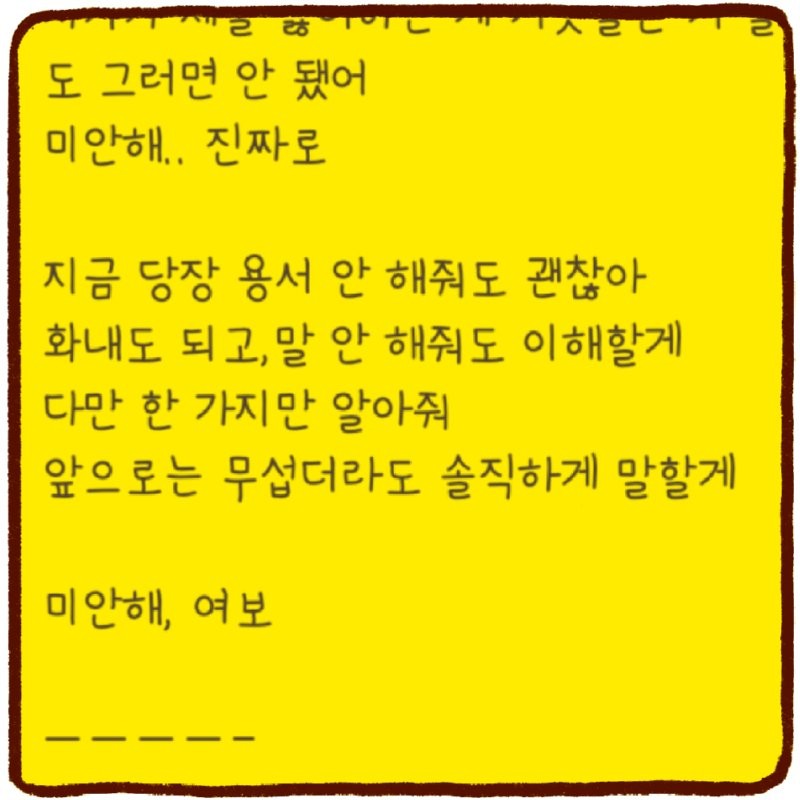 도 그러면 안 됐어
미안해.. 진짜로
지금 당장 용서 안 해줘도 괜찮아
화내도 되고,말 안 해줘도 이해할게
다만 한 가지만 알아줘
앞으로는 무섭더라도 솔직하게 말할게
미안해, 여보
— — — — –